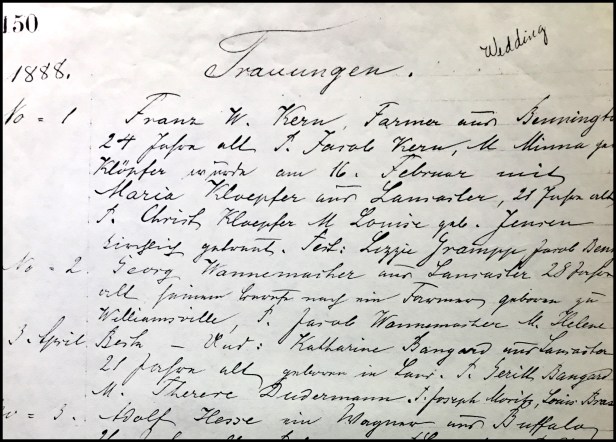 150
Wedding
1888. Trauungen.
No = 1 Franz W. Kern, Farmer aus Bennington
24 Jahre alt P. Jacob Kern, M Minna ge
Klöpfer wurde am 16. Februar mit
Maria Kloepfer aus Lancaster, 21 Jahre alt
P. Christ Kloepfer M Louise geb. Jensen
kirchlich getraut. Test: Lizzie Grampp Jacob Benn
No = 2. Georg Wannemacher aus Lancaster 28 Jahre
alt seinem berufe nach ein Farmer geboren zu
Williamsville, P. Jacob Wannemacher M. Helene
3. April Und: Katharine Bangard aus Lancaster
21 Jahre alt geboren in Lanc. P. Gerith Bangard
M. Therese Dudermann T. Joseph Moritz, Louis Bra
No = 3. Adolf Hesse ein Wagner aus Buffalo